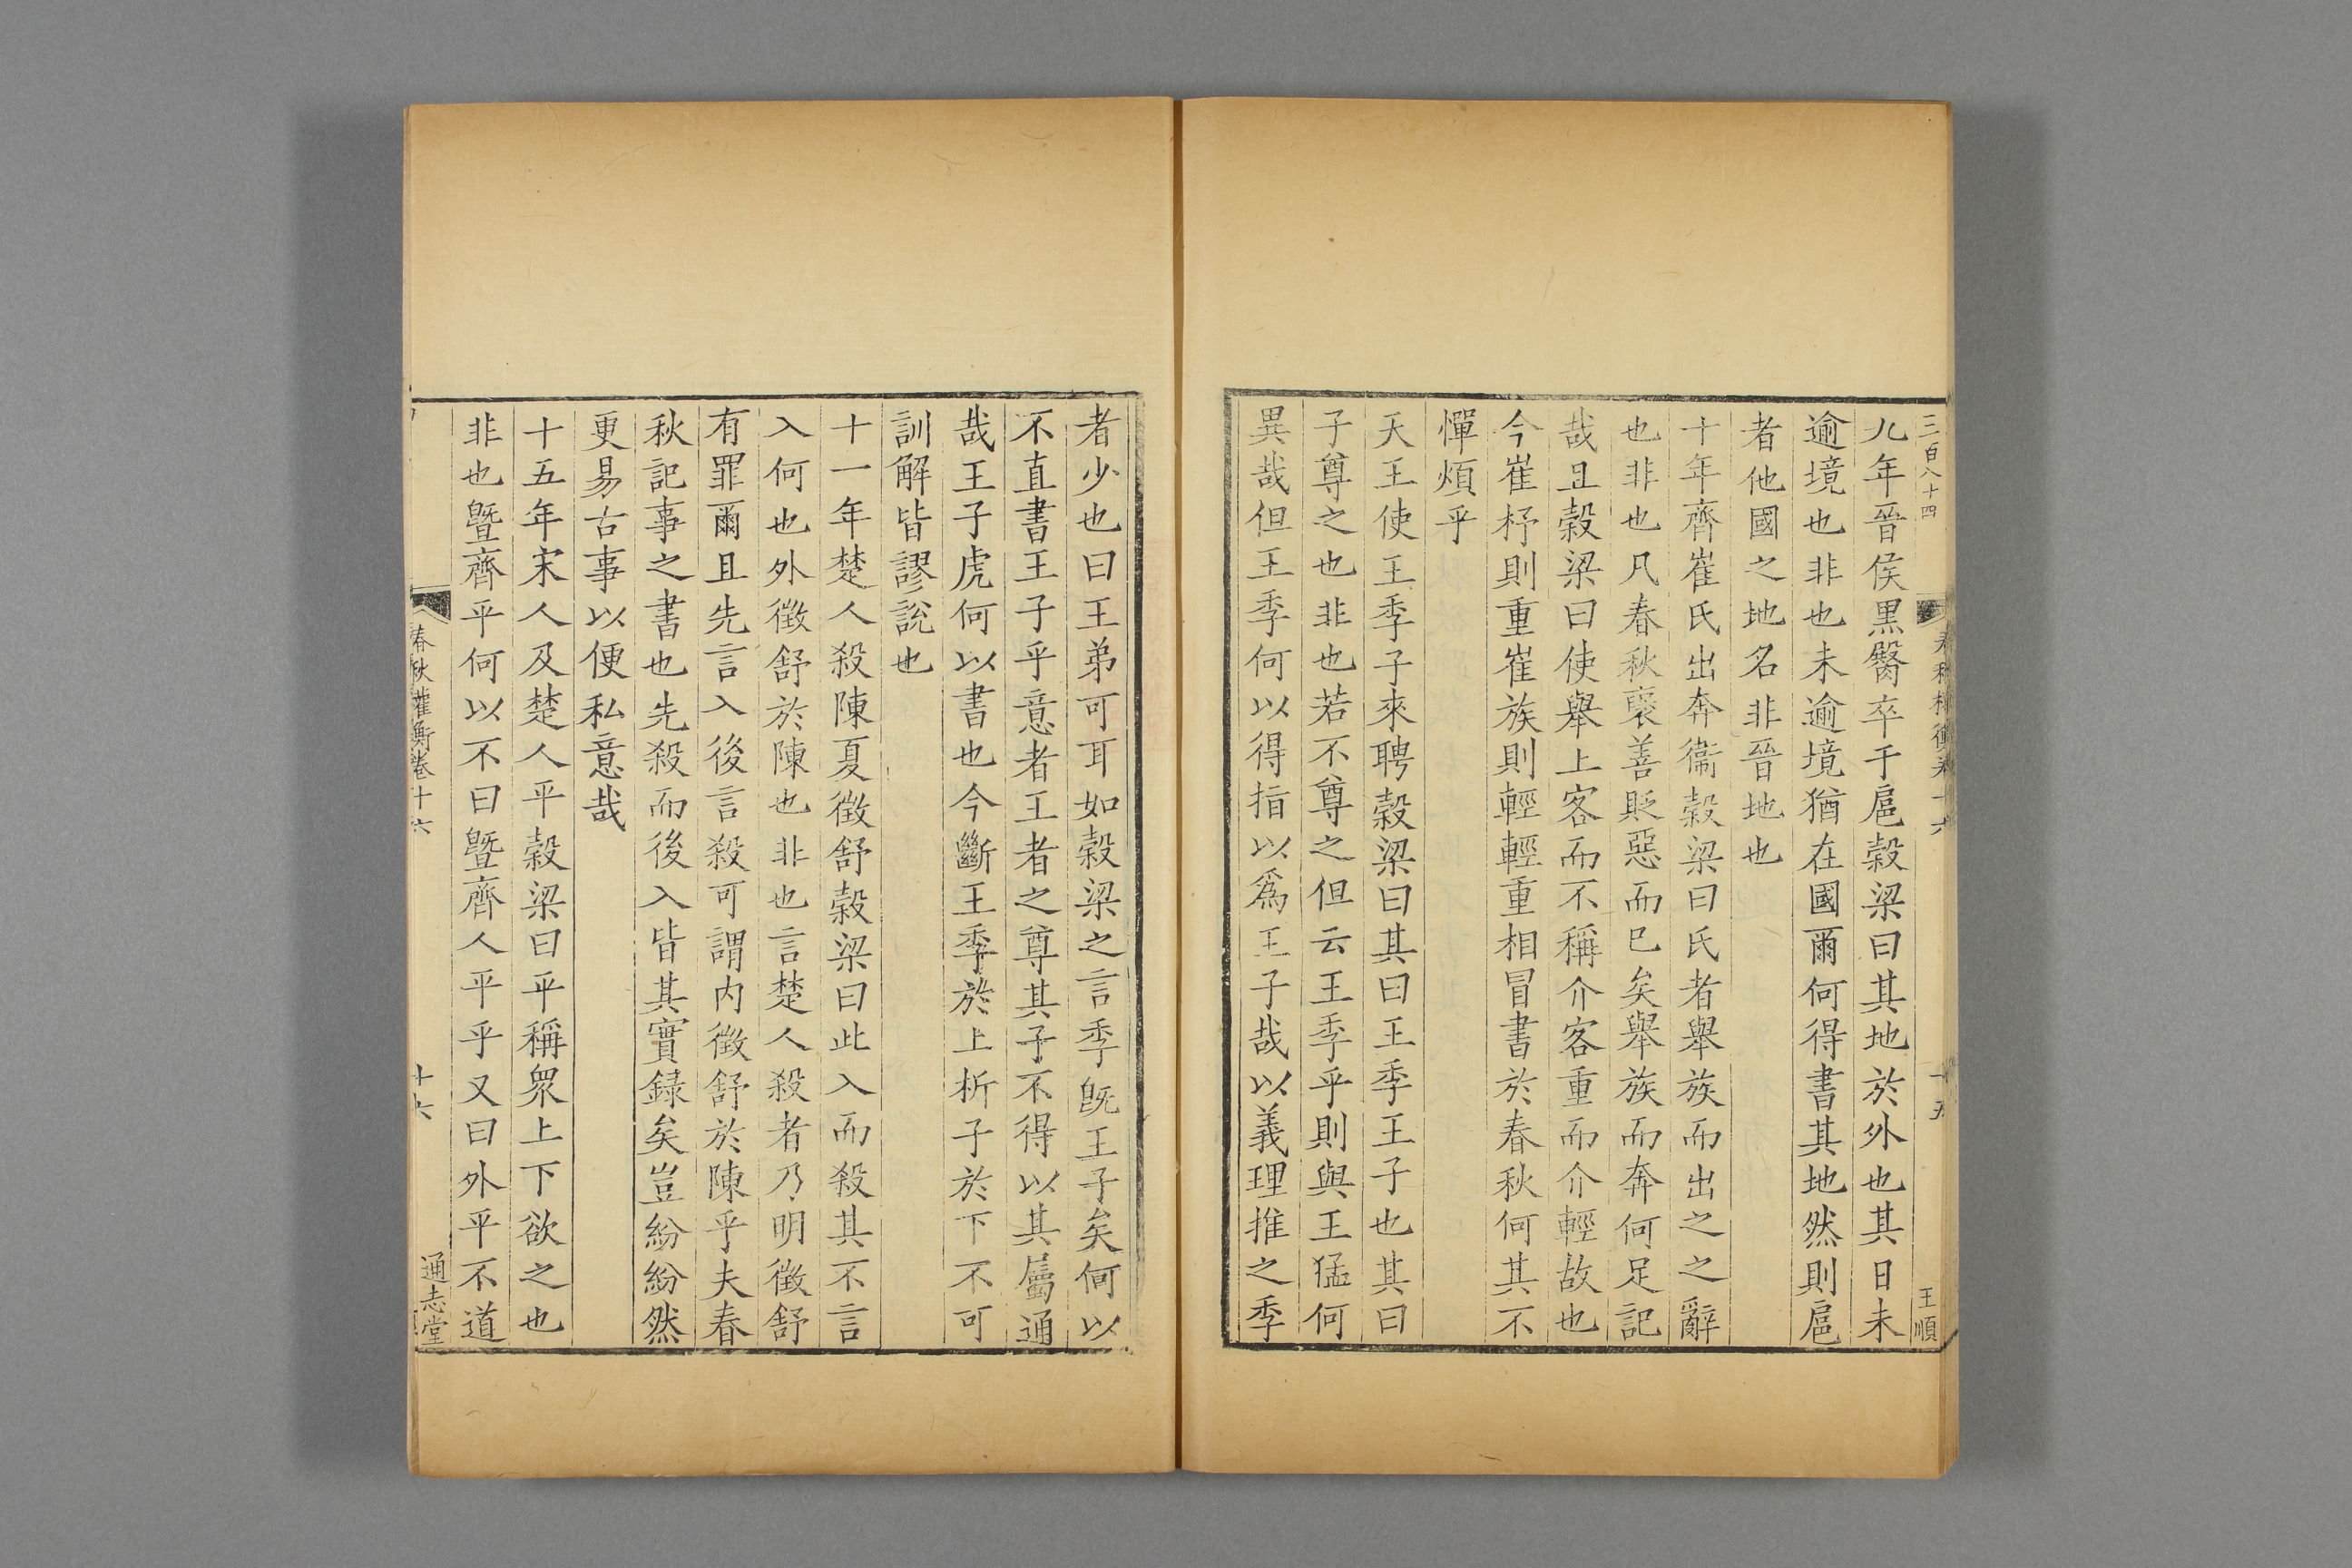 三百八十四
十五
王順
九年晉侯黑臀卒于扈穀梁曰其地於外也其日未
逾境也非也未逾境猶在國爾何得書其地然則扈
者他國之地名非晉地也
十年齊崔氏出奔衞穀梁曰氏者舉族而出之之辭
也非也凡春秋襃善貶惡而已矣舉族而奔何足記
哉且穀梁曰使舉上客而不稱介客重而介輕故也
今崔杼則重崔族則輕輕重相冒書於春秋何其不
憚煩乎
天王使王季子來聘穀梁曰其曰王季王子也其曰
子尊之也非也若不尊之但云王季乎則與王猛何
異哉但王季何以得指以爲王子哉以義理推之季
者少也曰王弟可耳如穀梁之言季旣王子矣何以
不直書王子乎意者王者之尊其子不得以其屬通
哉王子虎何以書也今斷王季於上析子於下不可
訓解皆謬說也
十一年楚人殺陳夏徵舒穀梁曰此入而殺其不言
入何也外徵舒於陳也非也言楚人殺者乃明徵舒
有罪爾且先言入後言殺可謂內徵舒於陳乎夫春
秋記事之書也先殺而後入皆其實錄矣豈紛紛然
更易古事以便私意哉
十五年宋人及楚人平穀梁曰平稱衆上下欲之也
非也暨齊平何以不曰暨齊人平乎又曰外平不道
春秋權衡卷十六
十六
通志堂